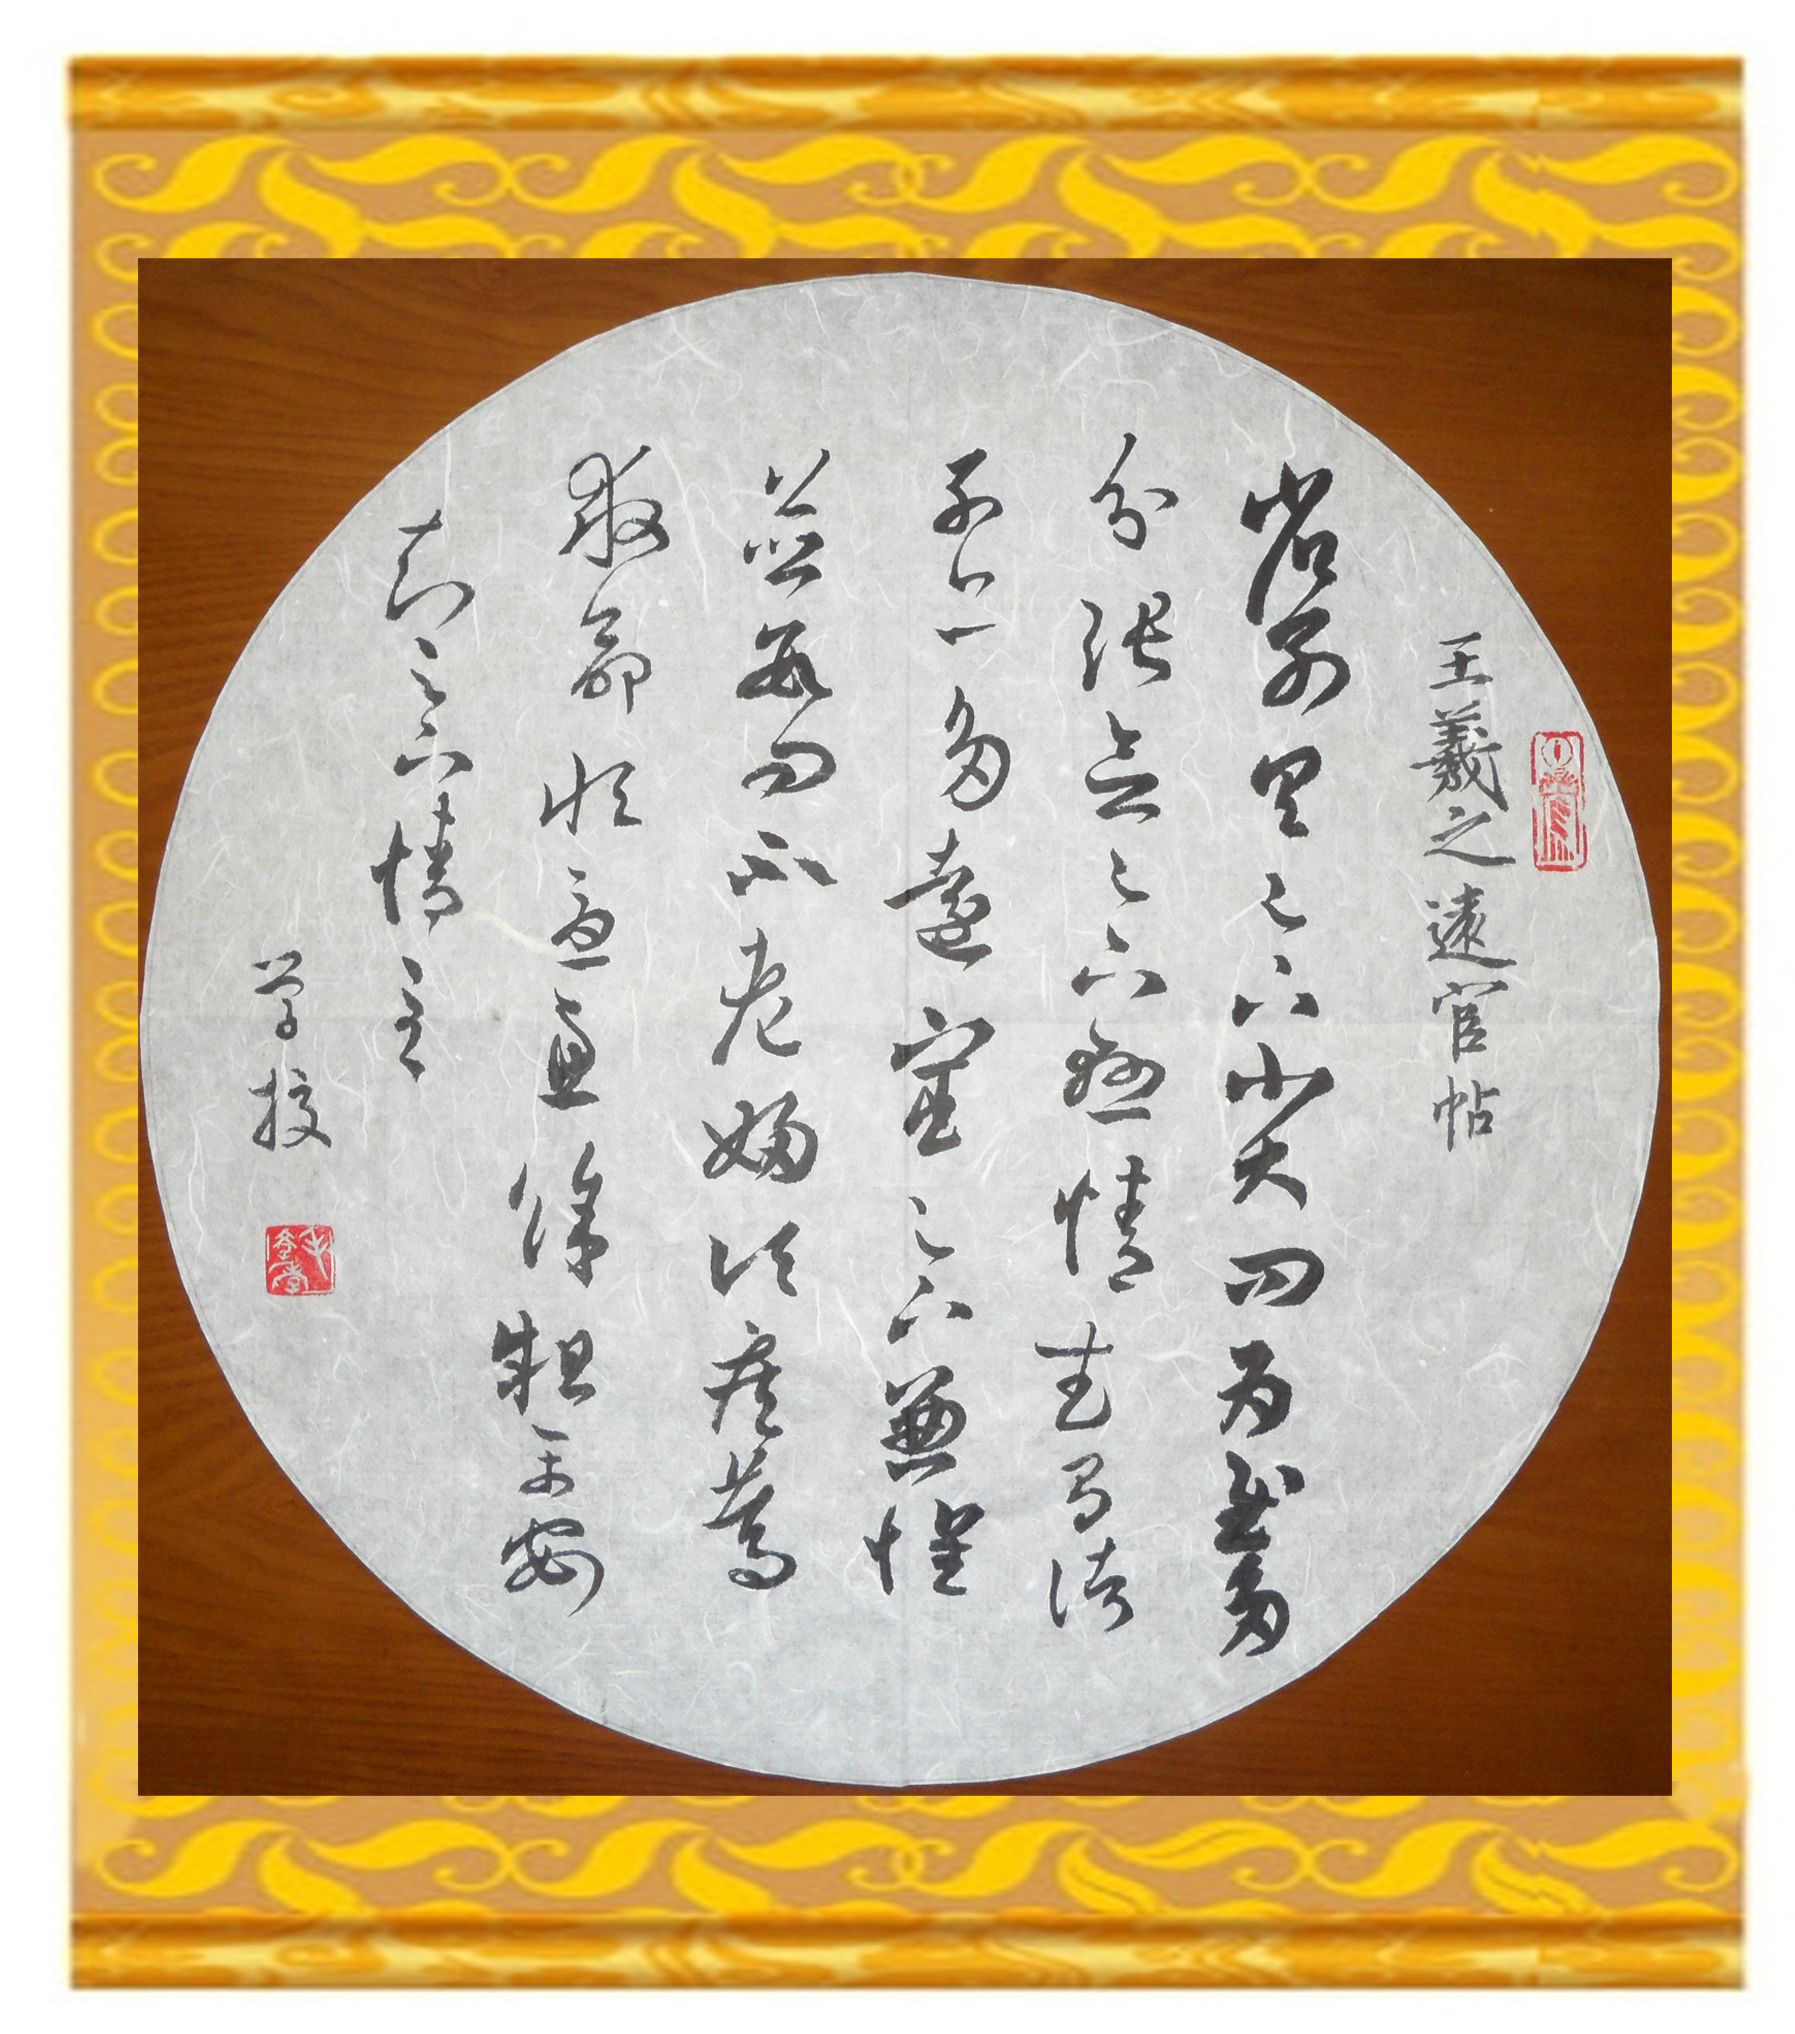 王羲之遠官帖
省別具足下小大問為慰多
分張念足下懸情武昌諸
子亦多遠宦足下兼懷
並數問不老婦頃疾篤
救命恒憂慮餘粗平安
知足下情至